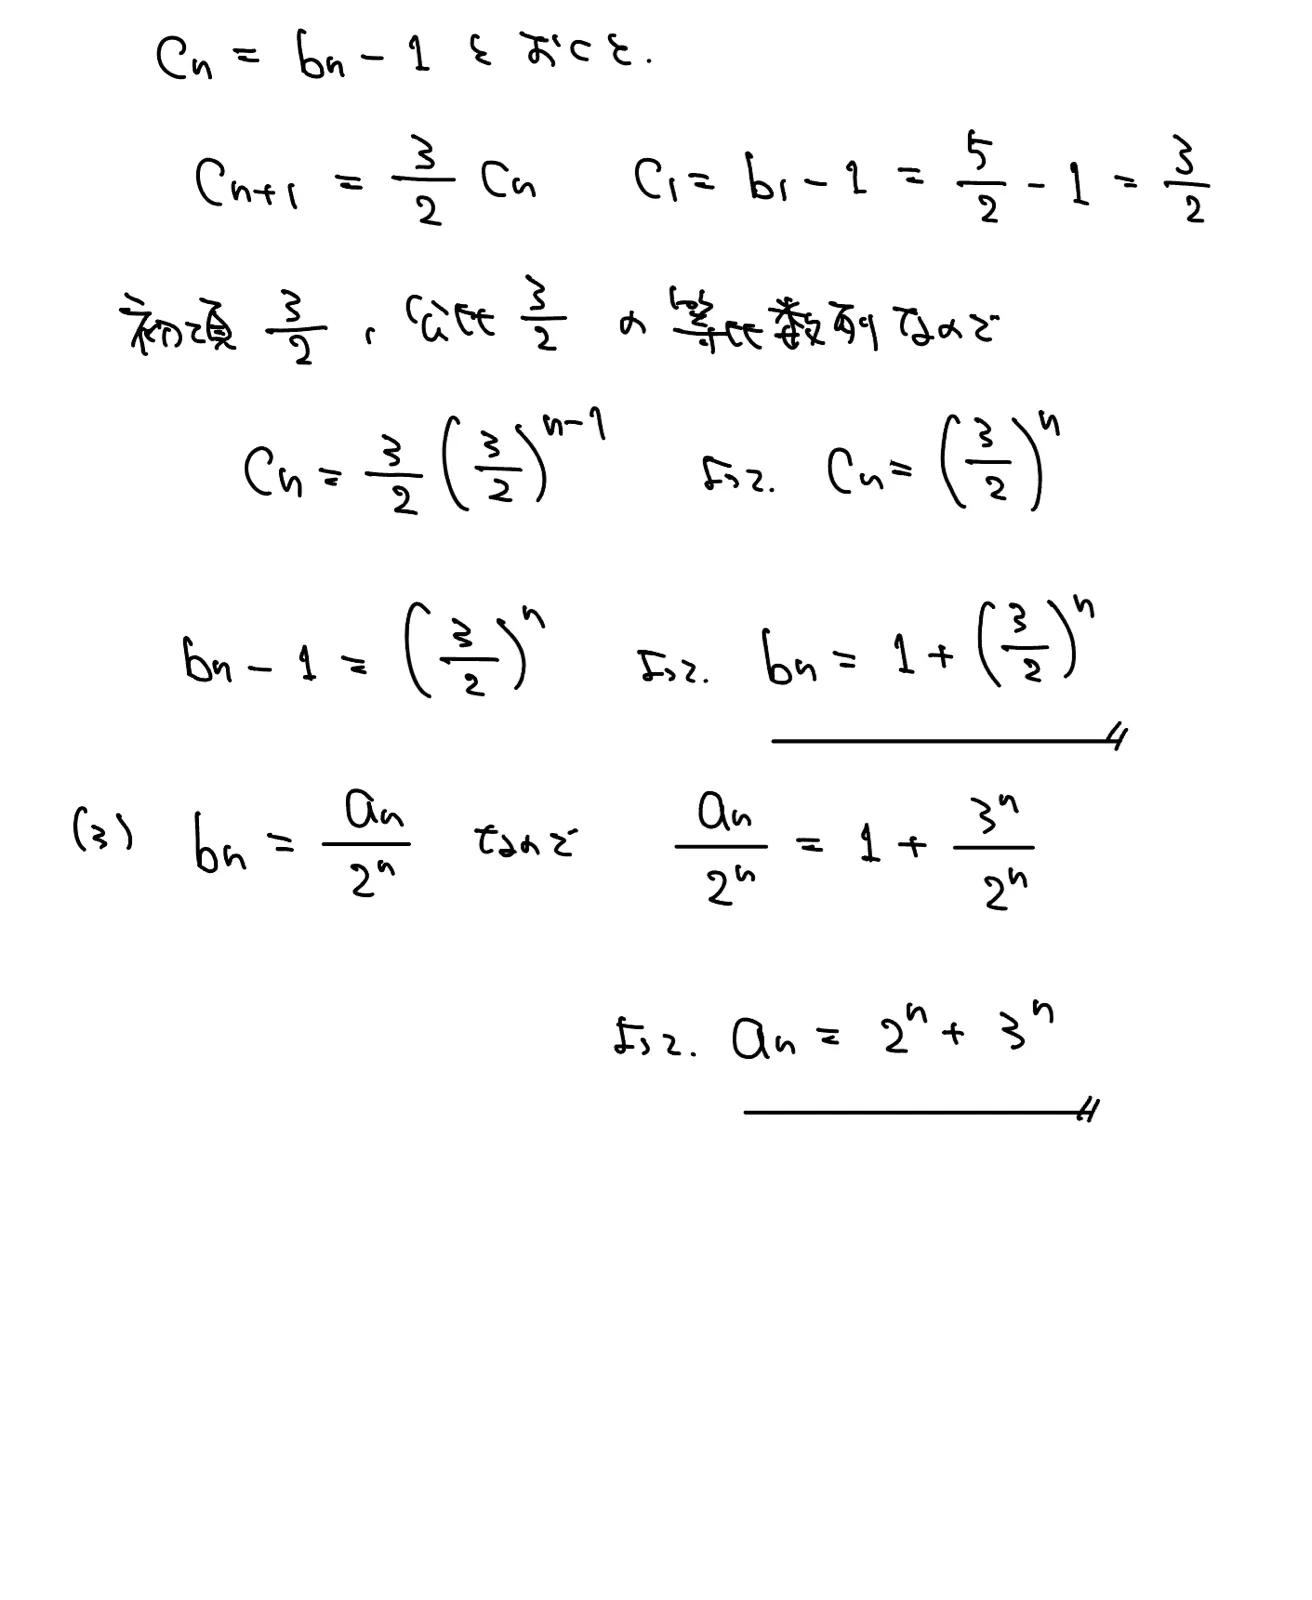 Cn = bn - 1 とおくと.
Cn+1 = 3/2 Cn   C1 = b1 - 1 = 5/2 - 1 = 3/2
初項 3/2 , 公比 3/2 の等比数列なので
Cn = 3/2 (3/2)^(n-1)   よって. Cn = (3/2)^n
bn - 1 = (3/2)^n   よって. bn = 1 + (3/2)^n
(3) bn = an/2^n なので an/2^n = 1 + 3^n/2^n
よって. an = 2^n + 3^n